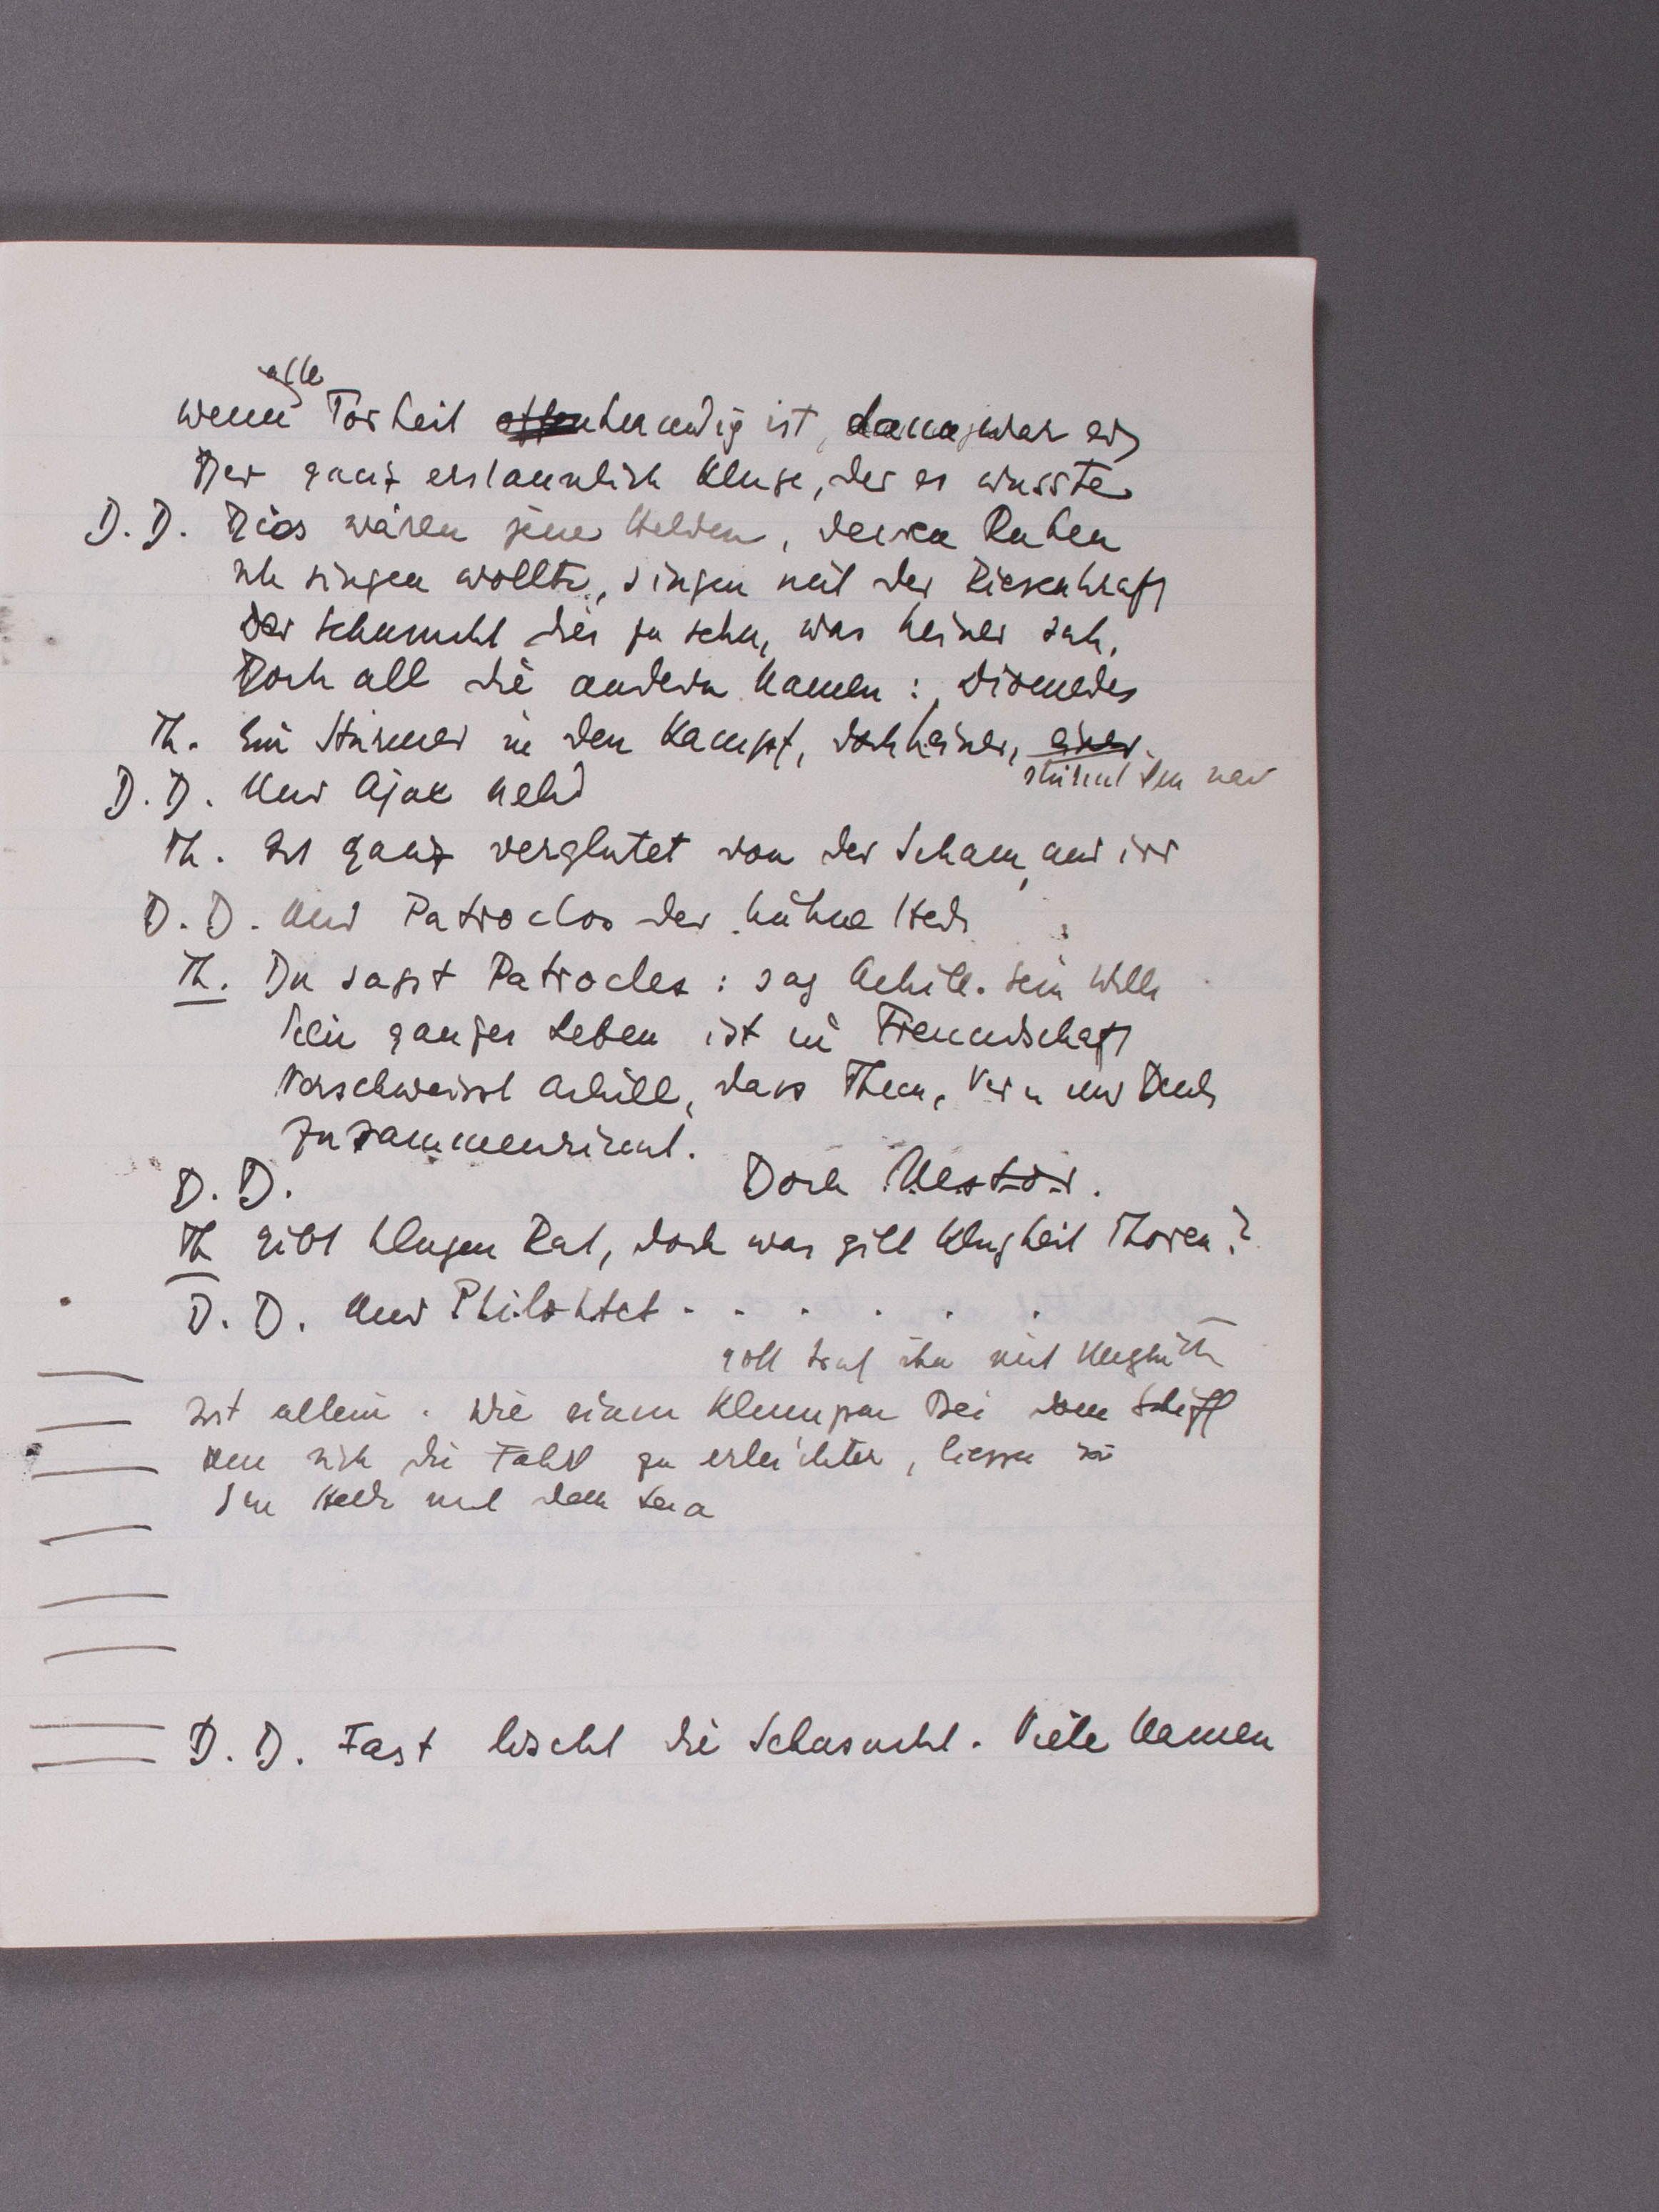 alle
wenn Torheit kundig ist, dann war er
Der ganz erstaunlich Kluge, der es wusste
D. D. Dies wären jene Helden, deren Ruhm
ich singen wollte, singen mit der Riesenkraft
der Sehnsucht die zu sehn, was keiner sah.
Doch all die andern Namen: Diomedes
Th. Ein Stürmer in den Kampf, doch keiner, einer.
stürmt den
D. D. Und Ajax
Th. Ist ganz verglutet von der Scham und irr
D. D. Und Patroclos der kühne Held
Th. Du sagst Patrocles: sag Achill. Sein Wille
Sein ganzes Leben ist in Freundschaft
Verschweisst Achill, dass Thun, und
zusammenrinnt.
D. D. Doch Nestor.
Th gibt klugen Rat, doch was gilt Klugheit Thoren?
D. D. Und Philoktet . . . . . .
traf ihn mit
Ist allein. Wie einen Klumpen Blei vom Schiff
um sich die Fahrt zu erleichter, liessen sie
den Held mit dem
D. D. Fast löscht die Sehnsucht. Viele Namen